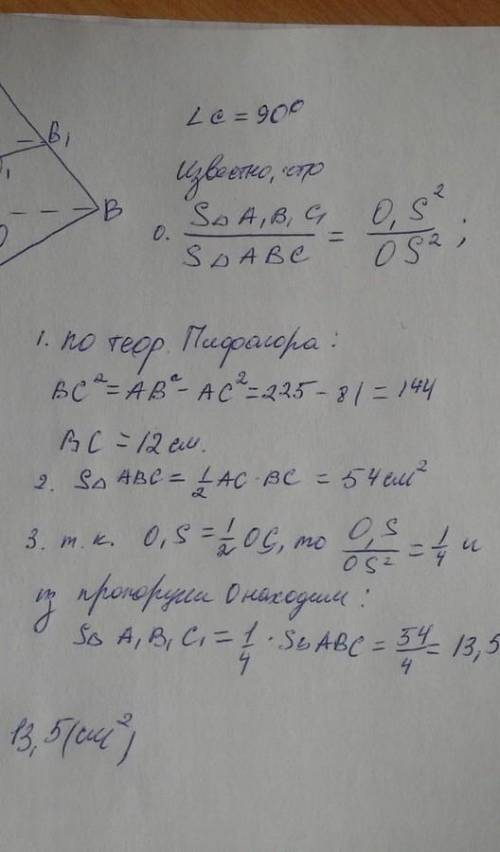 ∠C = 90°
B₁
Известно, что
B
0. S△A₁B₁C₁ / S△ABC = O₁S² / OS² ;
1. по теор. Пифагора:
BC² = AB² - AC² = 225 - 81 = 144
BC = 12 см.
2. S△ABC = 1/2 AC · BC = 54 см²
3. т.к. O₁S = 1/2 OS, то O₁S / OS² = 1/4 и
из пропорции 0 находим:
S△ A₁B₁C₁ = 1/4 · S△ABC = 54/4 = 13,5
13,5 (см²)